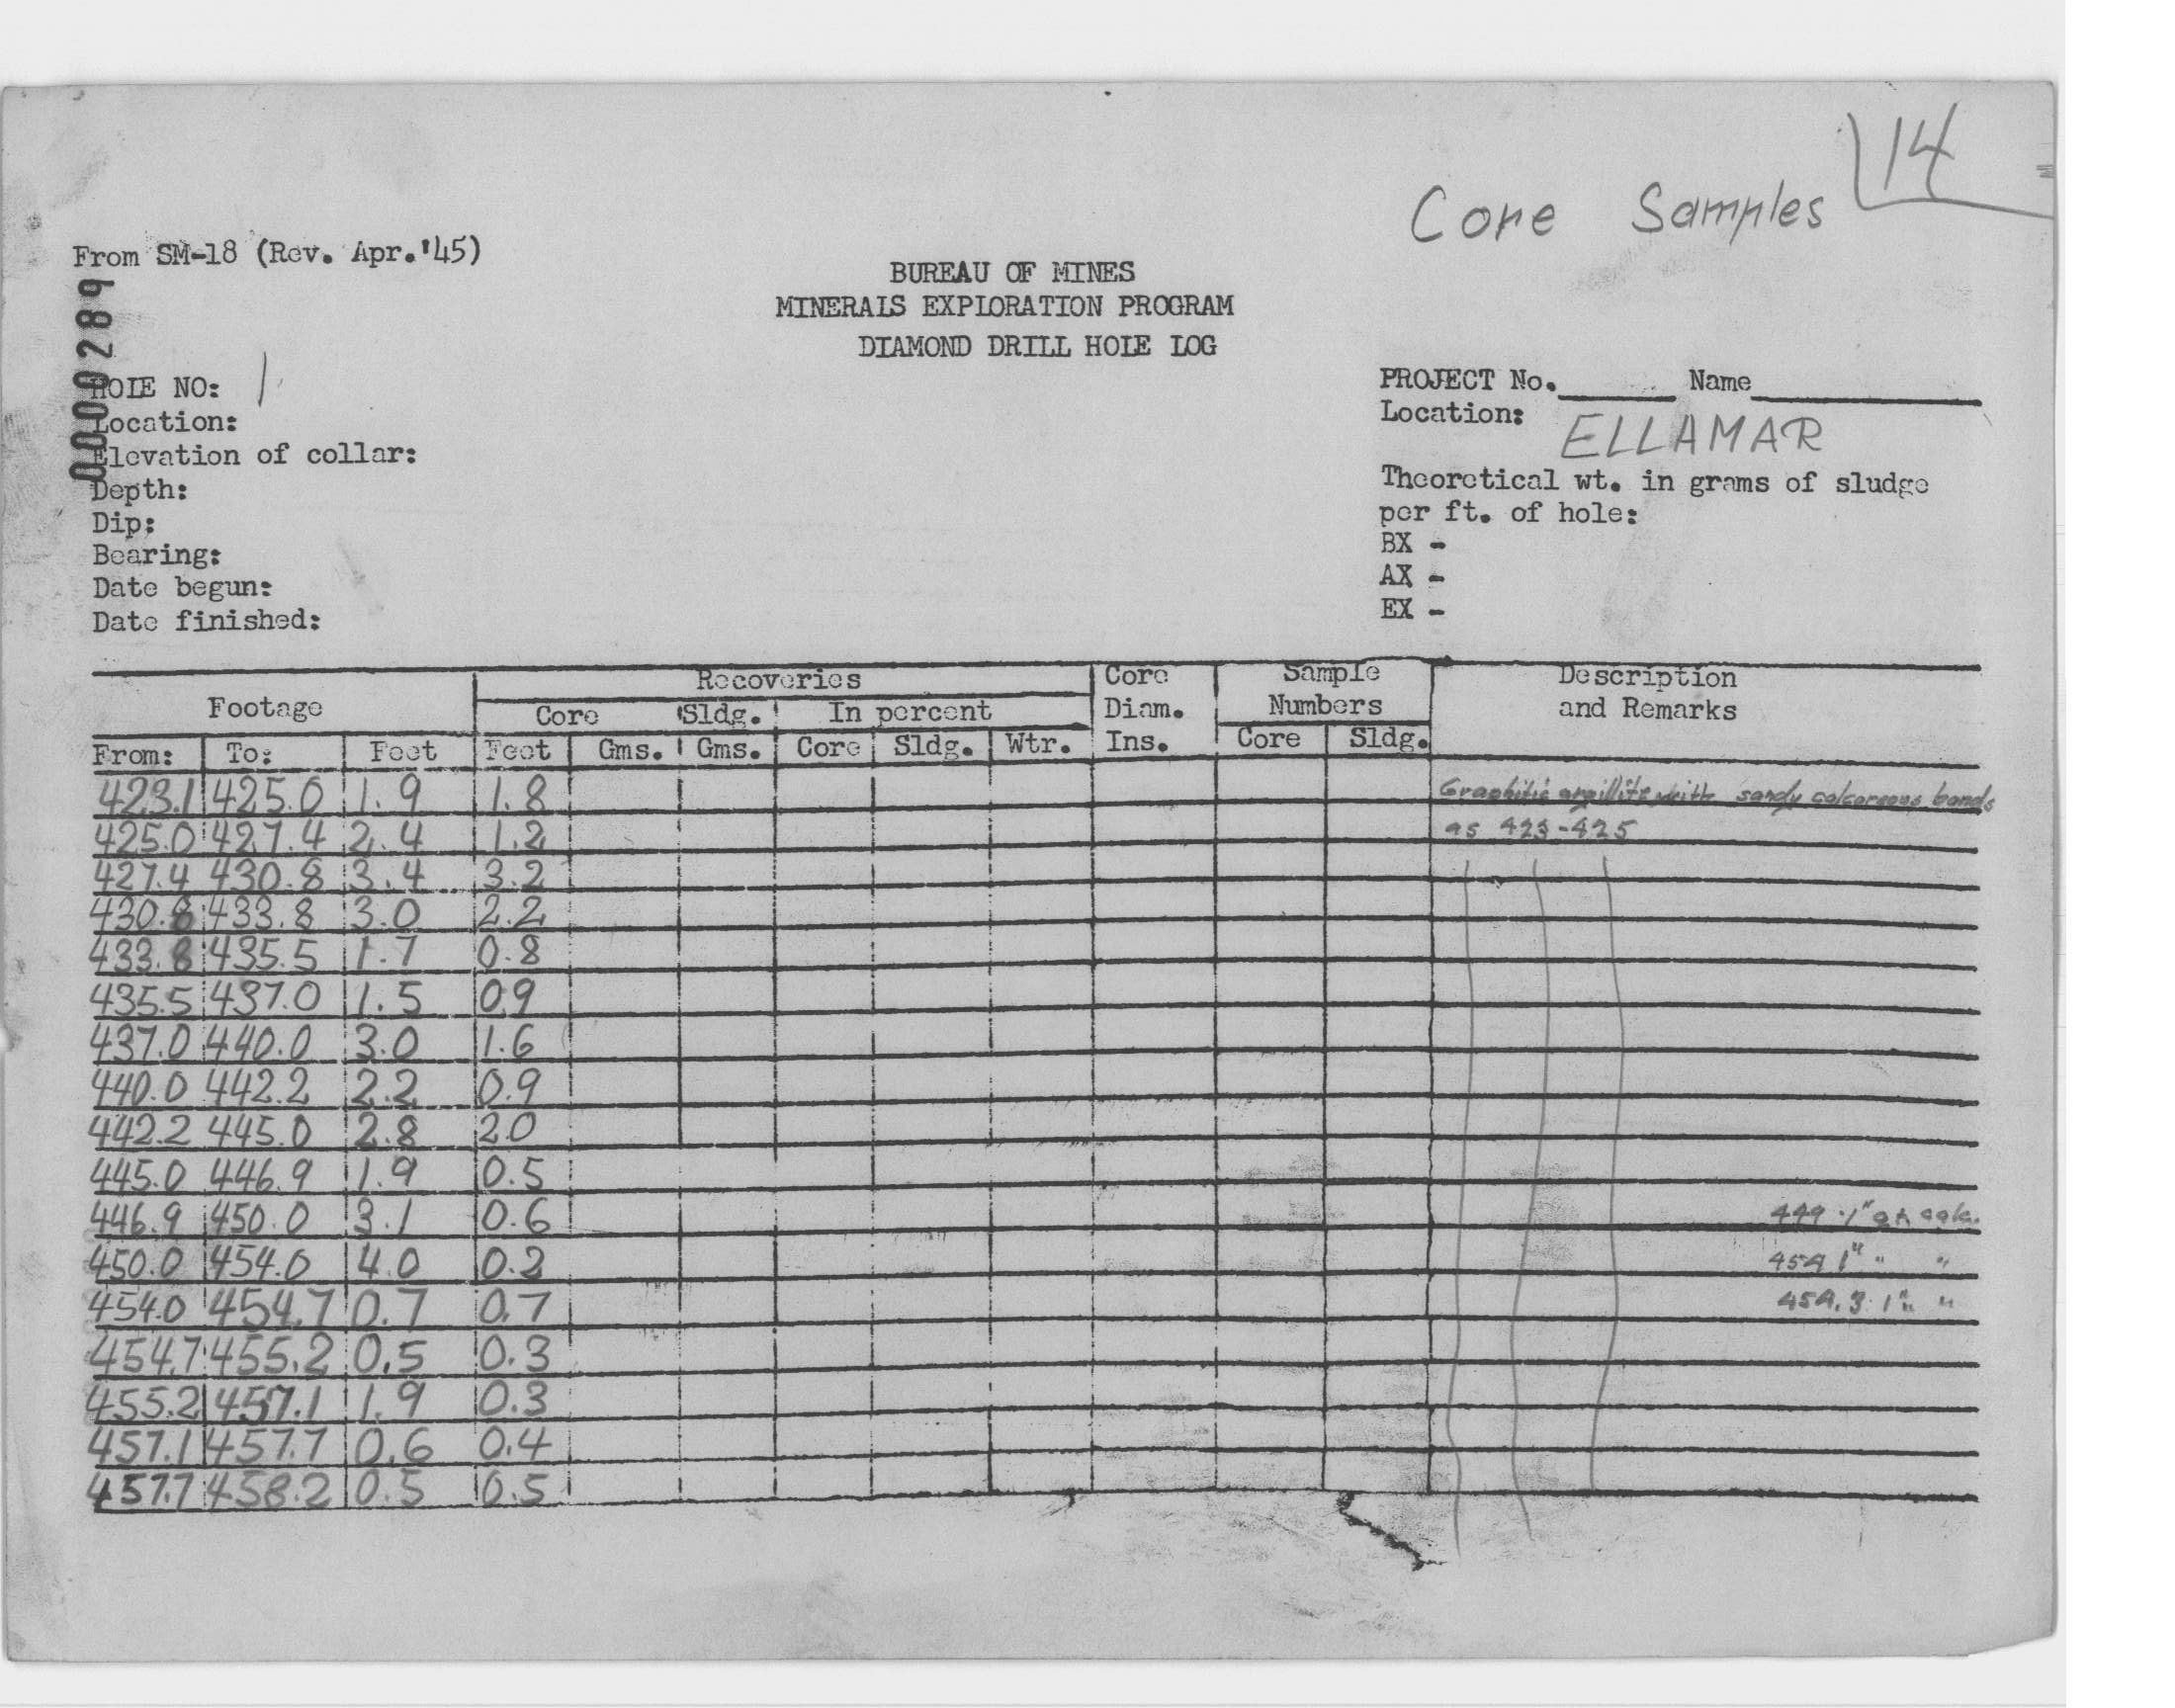 14
Core Samples
From SM-18 (Rev. Apr.'45)
0000289
BUREAU OF MINES
MINERALS EXPLORATION PROGRAM
DIAMOND DRILL HOLE LOG
HOLE NO: 1
Location:
Elevation of collar:
Depth:
Dip:
Bearing:
Date begun:
Date finished:
PROJECT No. Name
Location: ELLAMAR
Theoretical wt. in grams of sludge
per ft. of hole:
BX -
AX -
EX -
Footage Recoveries Core Diam. Ins. Sample Numbers Description and Remarks
Core Sldg. In percent
From: To: Feet Feet Gms. Gms. Core Sldg. Wtr. Core Sldg.
423.1 425.0 1.9 1.8 Graphitic argillite with sandy calcareous bands
425.0 427.4 2.4 1.2 as 423-425
427.4 430.8 3.4 3.2
430.8 433.8 3.0 2.2
433.8 435.5 1.7 0.8
435.5 437.0 1.5 0.9
437.0 440.0 3.0 1.6
440.0 442.2 2.2 0.9
442.2 445.0 2.8 2.0
445.0 446.9 1.9 0.5
446.9 450.0 3.1 0.6 449 1"
450.0 454.0 4.0 0.2 454 1" " "
454.0 454.7 0.7 0.7 454.3 1" "
454.7 455.2 0.5 0.3
455.2 457.1 1.9 0.3
457.1 457.7 0.6 0.4
457.7 458.2 0.5 0.5